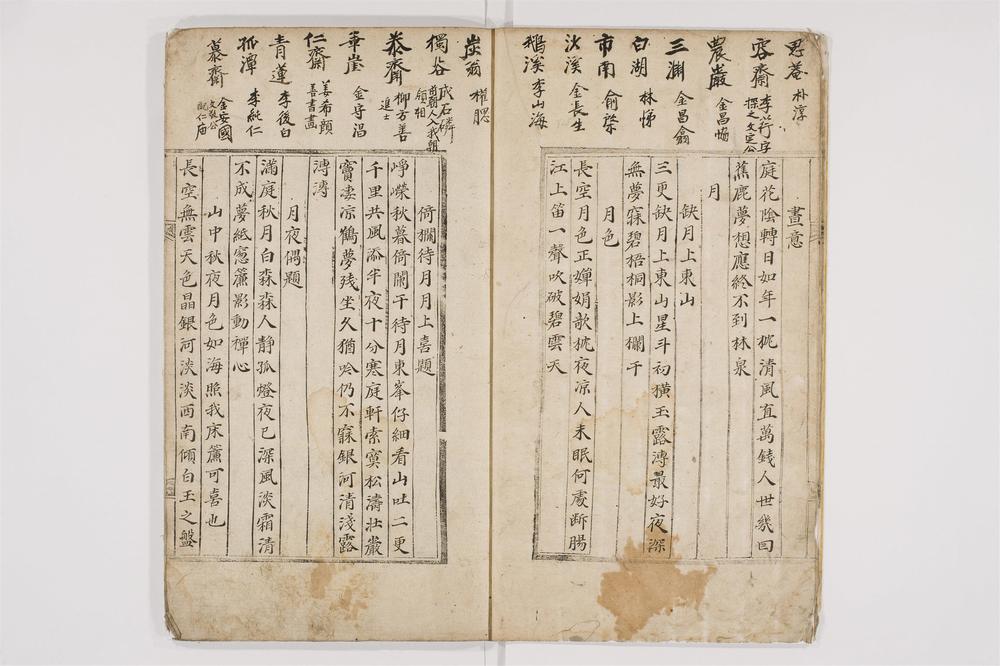 思菴 朴淳
容齋 李荇字
擇之文定公
農巖 金昌協
三淵 金昌翕
白湖 林悌
市南 俞棨
沙溪 金長生
鵝溪 李山海
晝意
庭花陰轉日如年一枕清風直萬錢人世幾回
蕉鹿夢想應終不到林泉
月
缺月上東山
三更缺月上東山星斗初橫玉露漙最好夜深
無夢寐碧梧桐影上欄干
月色
長空月色正嬋娟歌枕夜凉人未眠何處斷腸
江上笛一聲吹破碧雲天
炭翁 權諰
獨谷 成石磷
前朝人入我朝
領相
恭齋 柳方善
進士
華崖 金字
仁齋 姜希顔
善書畫
青蓮 李後白
孤潭 李純仁
慕齋 金安國
文敬公
配仁庙
倚欄待月月上喜題
崢嶸秋暮倚闌干待月東峯仔細看山吐二更
千里共風添半夜十分寒庭軒索寞松濤壯巖
竇凄凉鶴夢残坐久猶吟仍不寐銀河清淺露
漙漙
月夜偶題
滿庭秋月白森森人静孤燈夜已深風淡霜清
不成夢紙窓簾影動禪心
山中秋夜月色如海照我床簾可喜也
長空無雲天色晶銀河淡淡西南傾白玉之盤